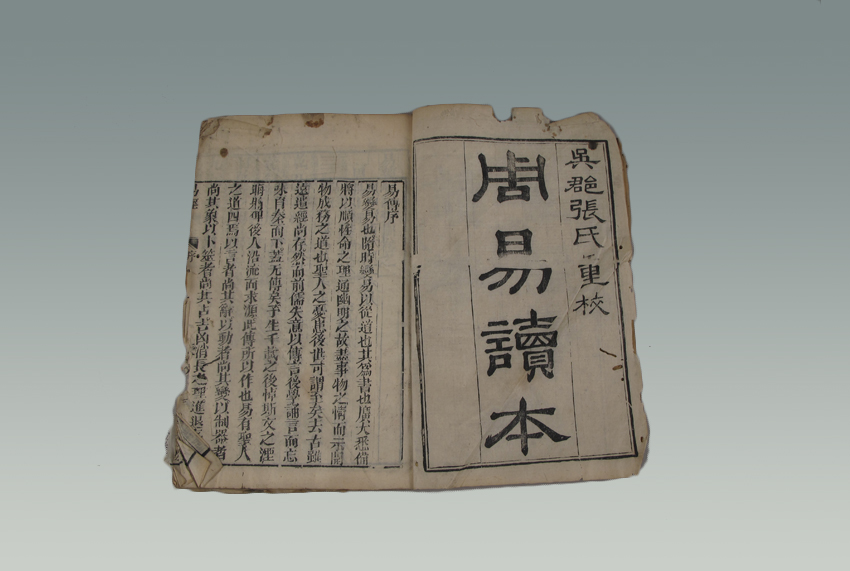 吳郡張氏重校
周易讀本
易傳序
易變易也隨時變易以從道也其為書也廣大悉備
將以順性命之理通幽明之故盡事物之情而示開
物成務之道也聖人之憂患後世可謂至矣去古雖
遠遺經尚存然而前儒失意以傳言後學誦言而忘
味自秦而下蓋无傳矣予生千載之後悼斯文之湮
晦將俾後人沿流而求源此傳所以作也易有聖人
之道四焉以言者尚其辭以動者尚其變以制器者
尚其象以卜筮者尚其占吉凶消長之理進退
易經 序